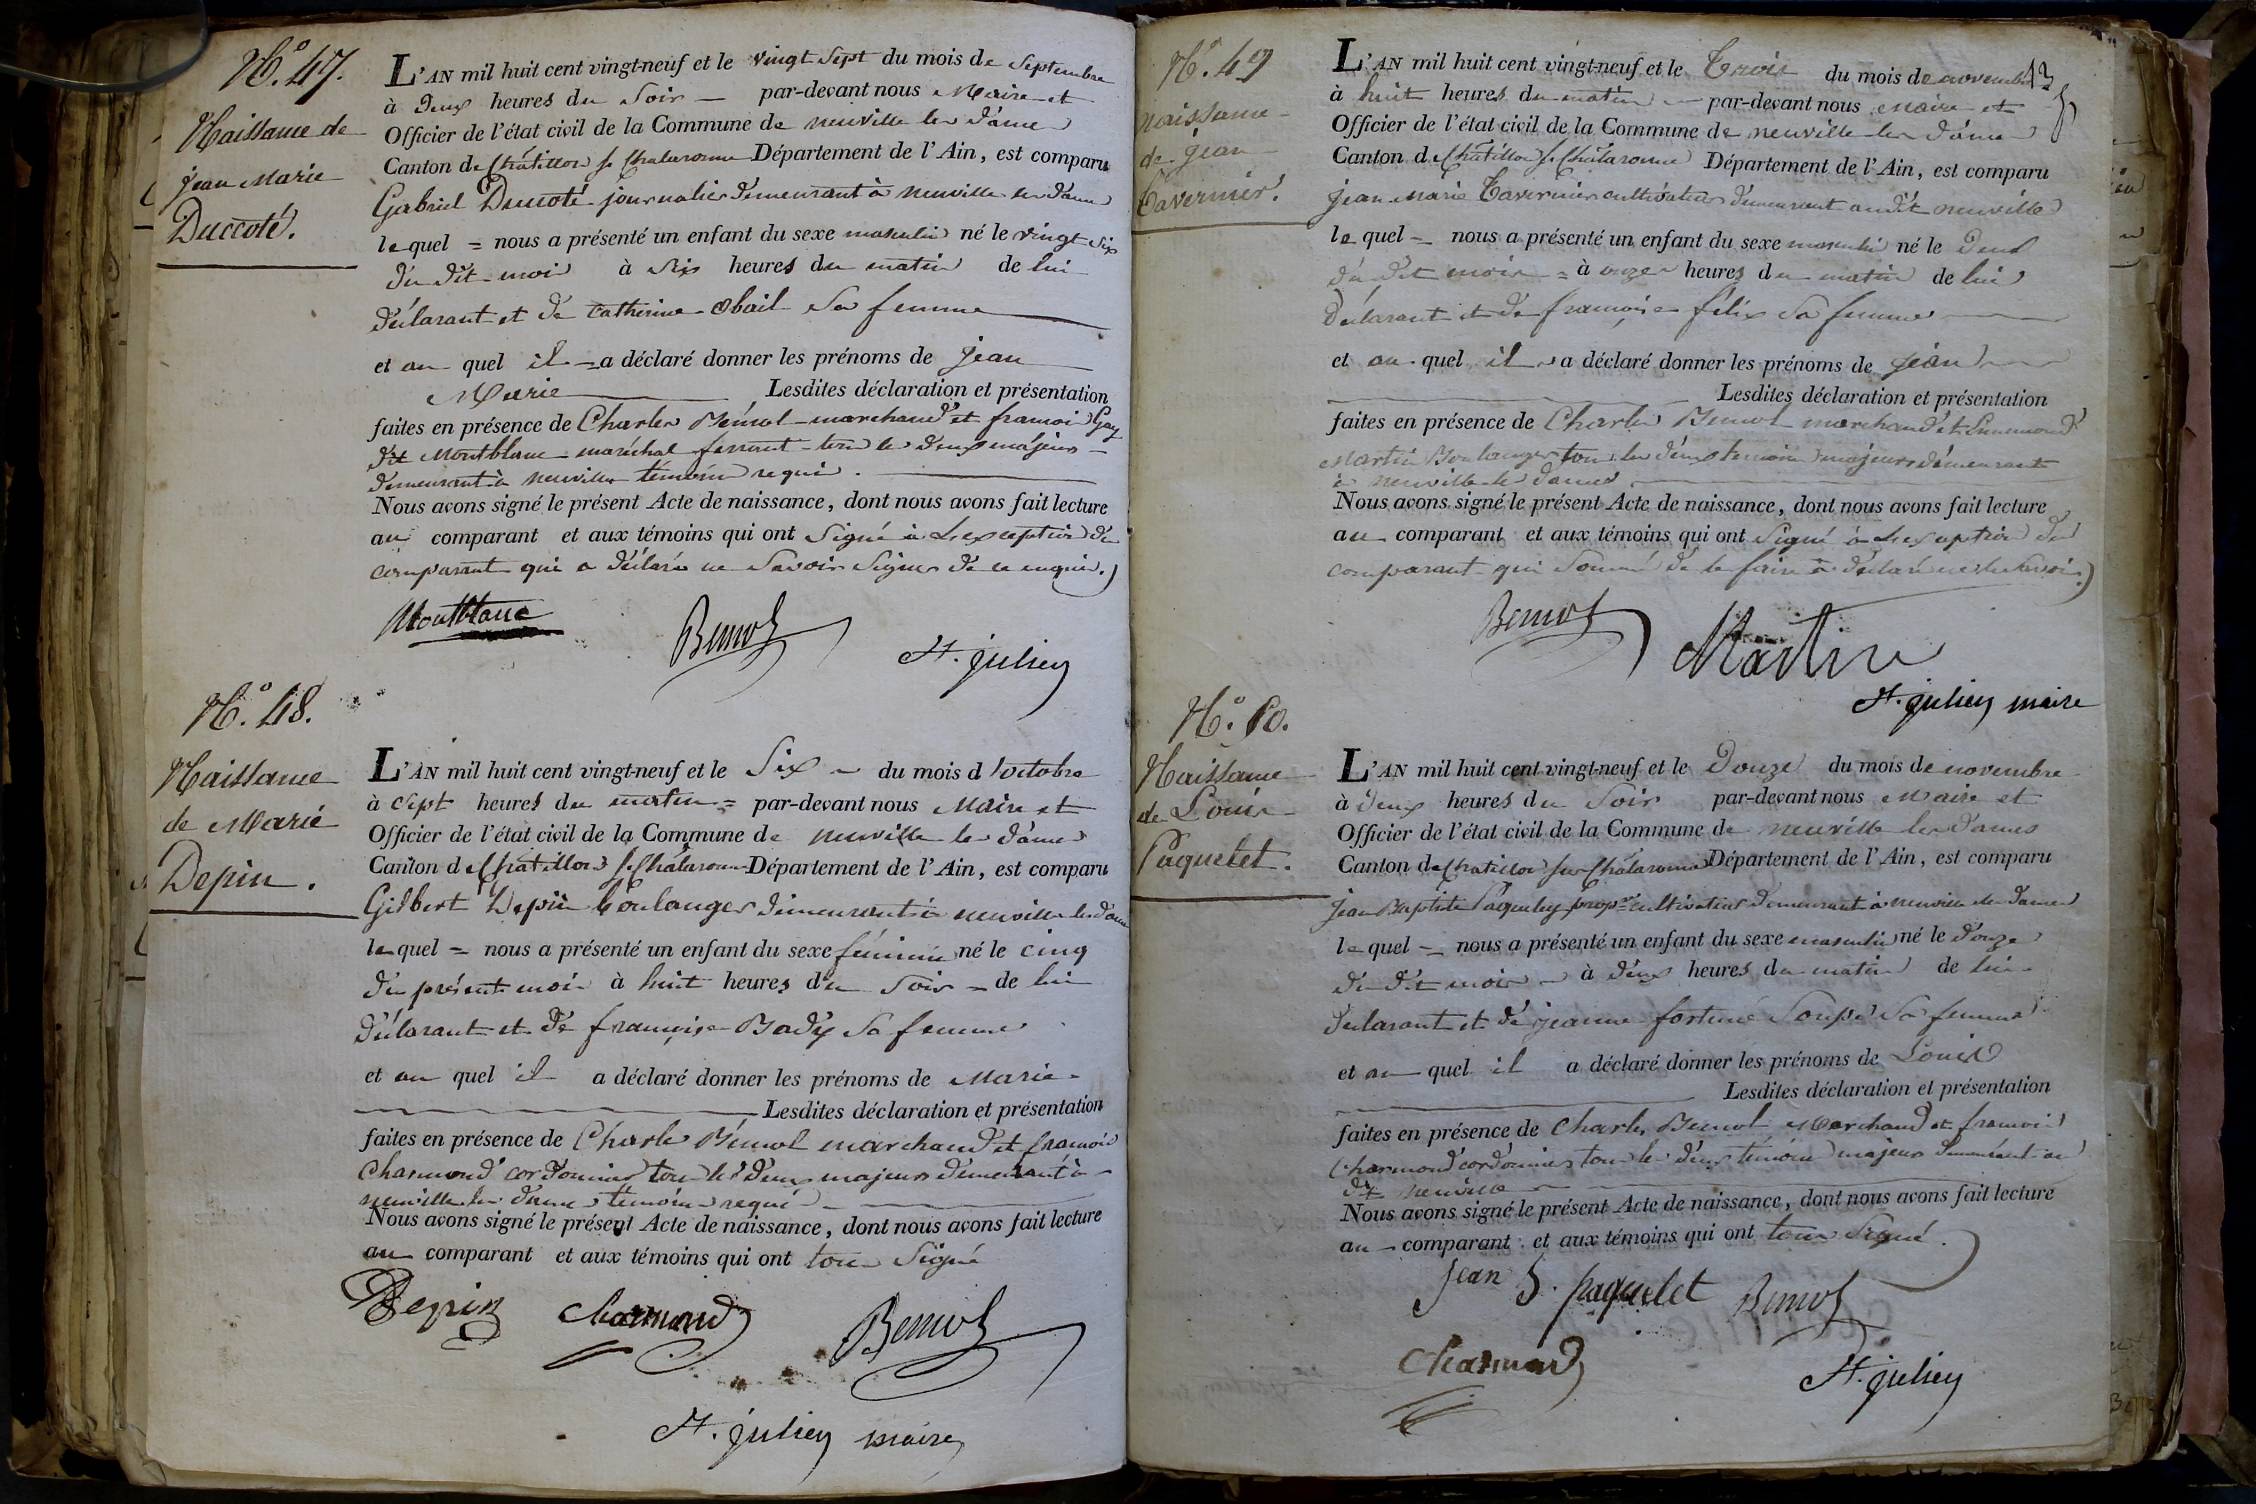 N.º 47.
Naissance de
Jean Marie
Duccoté.
L'AN mil huit cent vingt-neuf et le vingt sept du mois de Septembre
à deux heures du Soir — par-devant nous Maire et
Officier de l'état civil de la Commune de neuville les dames
Canton de Châtillon s. Chalaronne Département de l'Ain, est comparu
Gabriel Duccoté journalier demeurant à neuville les dames
lequel = nous a présenté un enfant du sexe masculin né le vingt six
du dit mois à six heures du matin de lui
déclarant et de Catherine Obail sa femme
et au quel il a déclaré donner les prénoms de jean
Marie Lesdites déclaration et présentation
faites en présence de Charles Bémol marchand et francois Gay
dit Montblanc maréchal ferrant tous les deux majeurs
demeurant à neuville témoins requis.
Nous avons signé le présent Acte de naissance, dont nous avons fait lecture
au comparant et aux témoins qui ont Signé à l'exception du
comparant qui a déclaré ne Savoir Signer de ce enquis.
Montblanc
Bemol
St. julien
N.º 48.
Naissance
de Marie
Depin.
L'AN mil huit cent vingt-neuf et le Six du mois d'octobre
à Sept heures du matin = par-devant nous Maire et
Officier de l'état civil de la Commune de neuville les dames
Canton de Châtillon s. Chalaronne Département de l'Ain, est comparu
Gilbert Depin boulanger demeurant à neuville les dames
lequel = nous a présenté un enfant du sexe féminin né le cinq
du présent mois à huit heures du Soir de lui
déclarant et de françoise Bady sa femme
et au quel il a déclaré donner les prénoms de Marie
Lesdites déclaration et présentation
faites en présence de Charles Bémol marchand et francois
Charmond cordonnier tous les deux majeurs demeurant à
neuville les dames témoins requis
Nous avons signé le présent Acte de naissance, dont nous avons fait lecture
au comparant et aux témoins qui ont tous Signé
Depin Charmond Bemol
St. julien maire
N.º 49
naissance
de jean
Tavernier.
13
L'AN mil huit cent vingt-neuf et le Trois du mois de novembre
à huit heures du matin par-devant nous Maire et
Officier de l'état civil de la Commune de neuville les dames
Canton de Châtillon s. Châlaronne Département de l'Ain, est comparu
jean Marie Tavernier cultivateur demeurant audit neuville
lequel nous a présenté un enfant du sexe masculin né le Deux
du dit mois = à onze heures du matin de lui
déclarant et de françoise félix sa femme
et au quel il a déclaré donner les prénoms de jean
Lesdites déclaration et présentation
faites en présence de Charles Bemol marchand et Ennemond
Martin Boulanger tous les deux témoins majeurs demeurant
à neuville les dames
Nous avons signé le présent Acte de naissance, dont nous avons fait lecture
au comparant et aux témoins qui ont Signé à l'exception du
comparant qui Sommé de le faire a déclaré ne le Savoir
Bemol Martin
St. julien maire
N.º 50.
Naissance
de Louis
Paquelet.
L'AN mil huit cent vingt-neuf et le Douze du mois de novembre
à deux heures du Soir par-devant nous Maire et
Officier de l'état civil de la Commune de neuville les dames
Canton de Chatillon sur Châlaronne Département de l'Ain, est comparu
jean Baptiste Paquelet prop.re cultivateur demeurant à neuville les dames
lequel nous a présenté un enfant du sexe masculin né le douze
du dit mois à deux heures du matin de lui
déclarant et de jeanne fortuné Soupé sa femme
et au quel il a déclaré donner les prénoms de Louis
Lesdites déclaration et présentation
faites en présence de Charles Bemol Marchand et francois
Charmond cordonnier tous les deux témoins majeurs demeurant au
dit neuville
Nous avons signé le présent Acte de naissance, dont nous avons fait lecture
au comparant et aux témoins qui ont tous Signé.
jean B. paquelet Bemol
Charmond St. julien